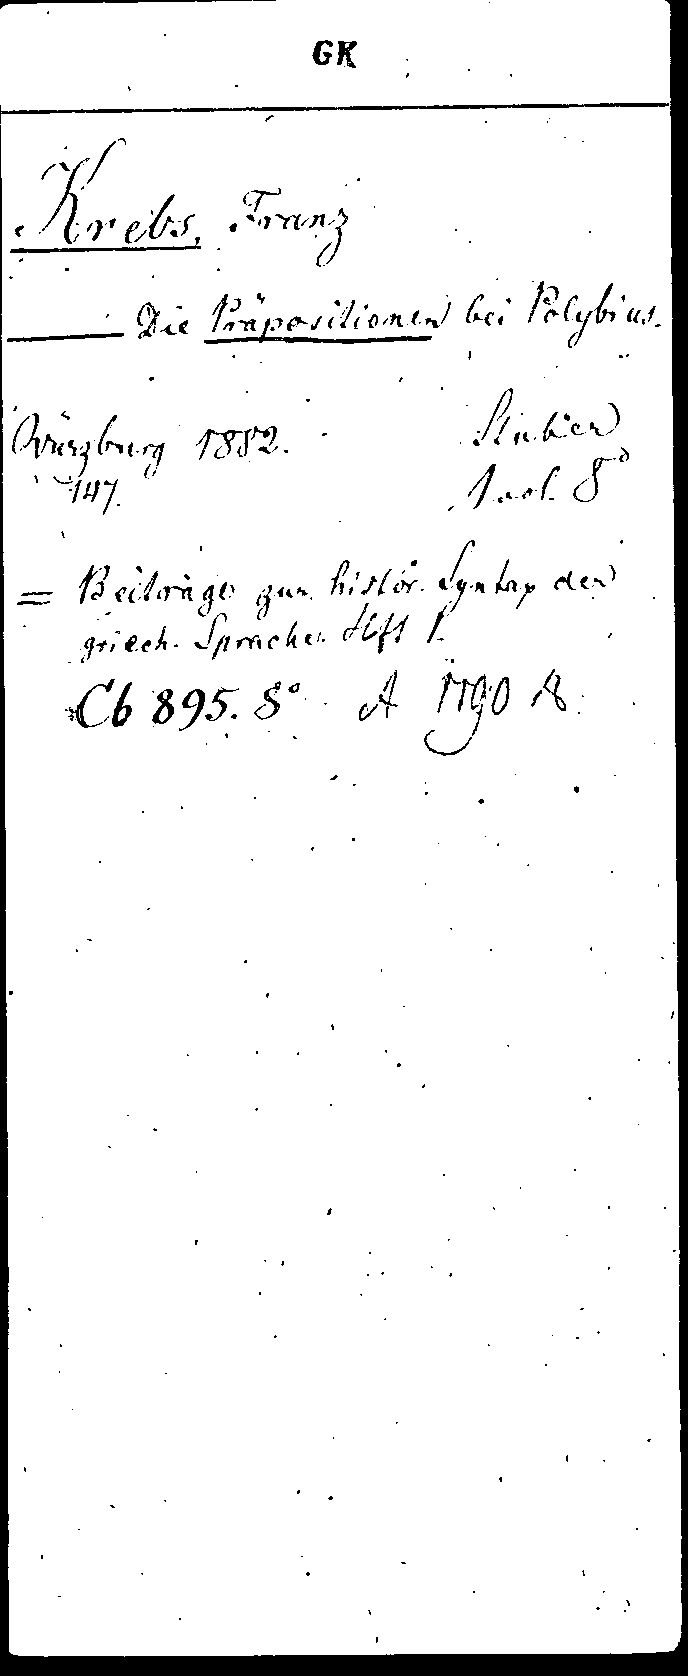 GK
Krebs, Franz
—— Die Präpositionen bei Polybius.
Würzburg 1882. Stuber
147. 1 vol. 8°
= Beiträge zur histor. Syntax der
griech. Sprache. Heft 1.
Cb 895. 8° A